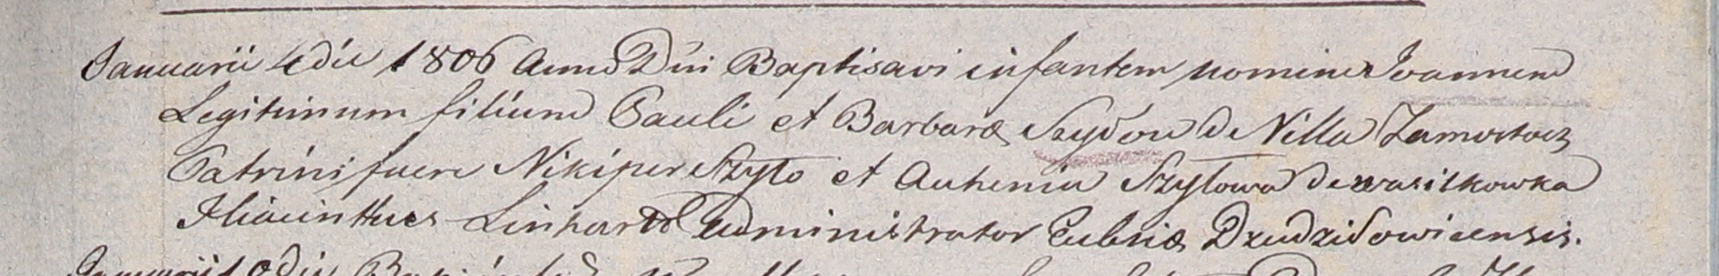 Januarii 4 die 1806 Anno Dni Baptisavi infantem nomine Joannem
Legitimum filium Pauli et Barbaræ Szyłow de Villa Zamostocz
Patrini fuere Nikiper Szyło et Auhenia Szyłowa de wasilkowka
Hiacinthus Linhart administrator Eccl&iae Dziudziłowicensis.
Januarii die